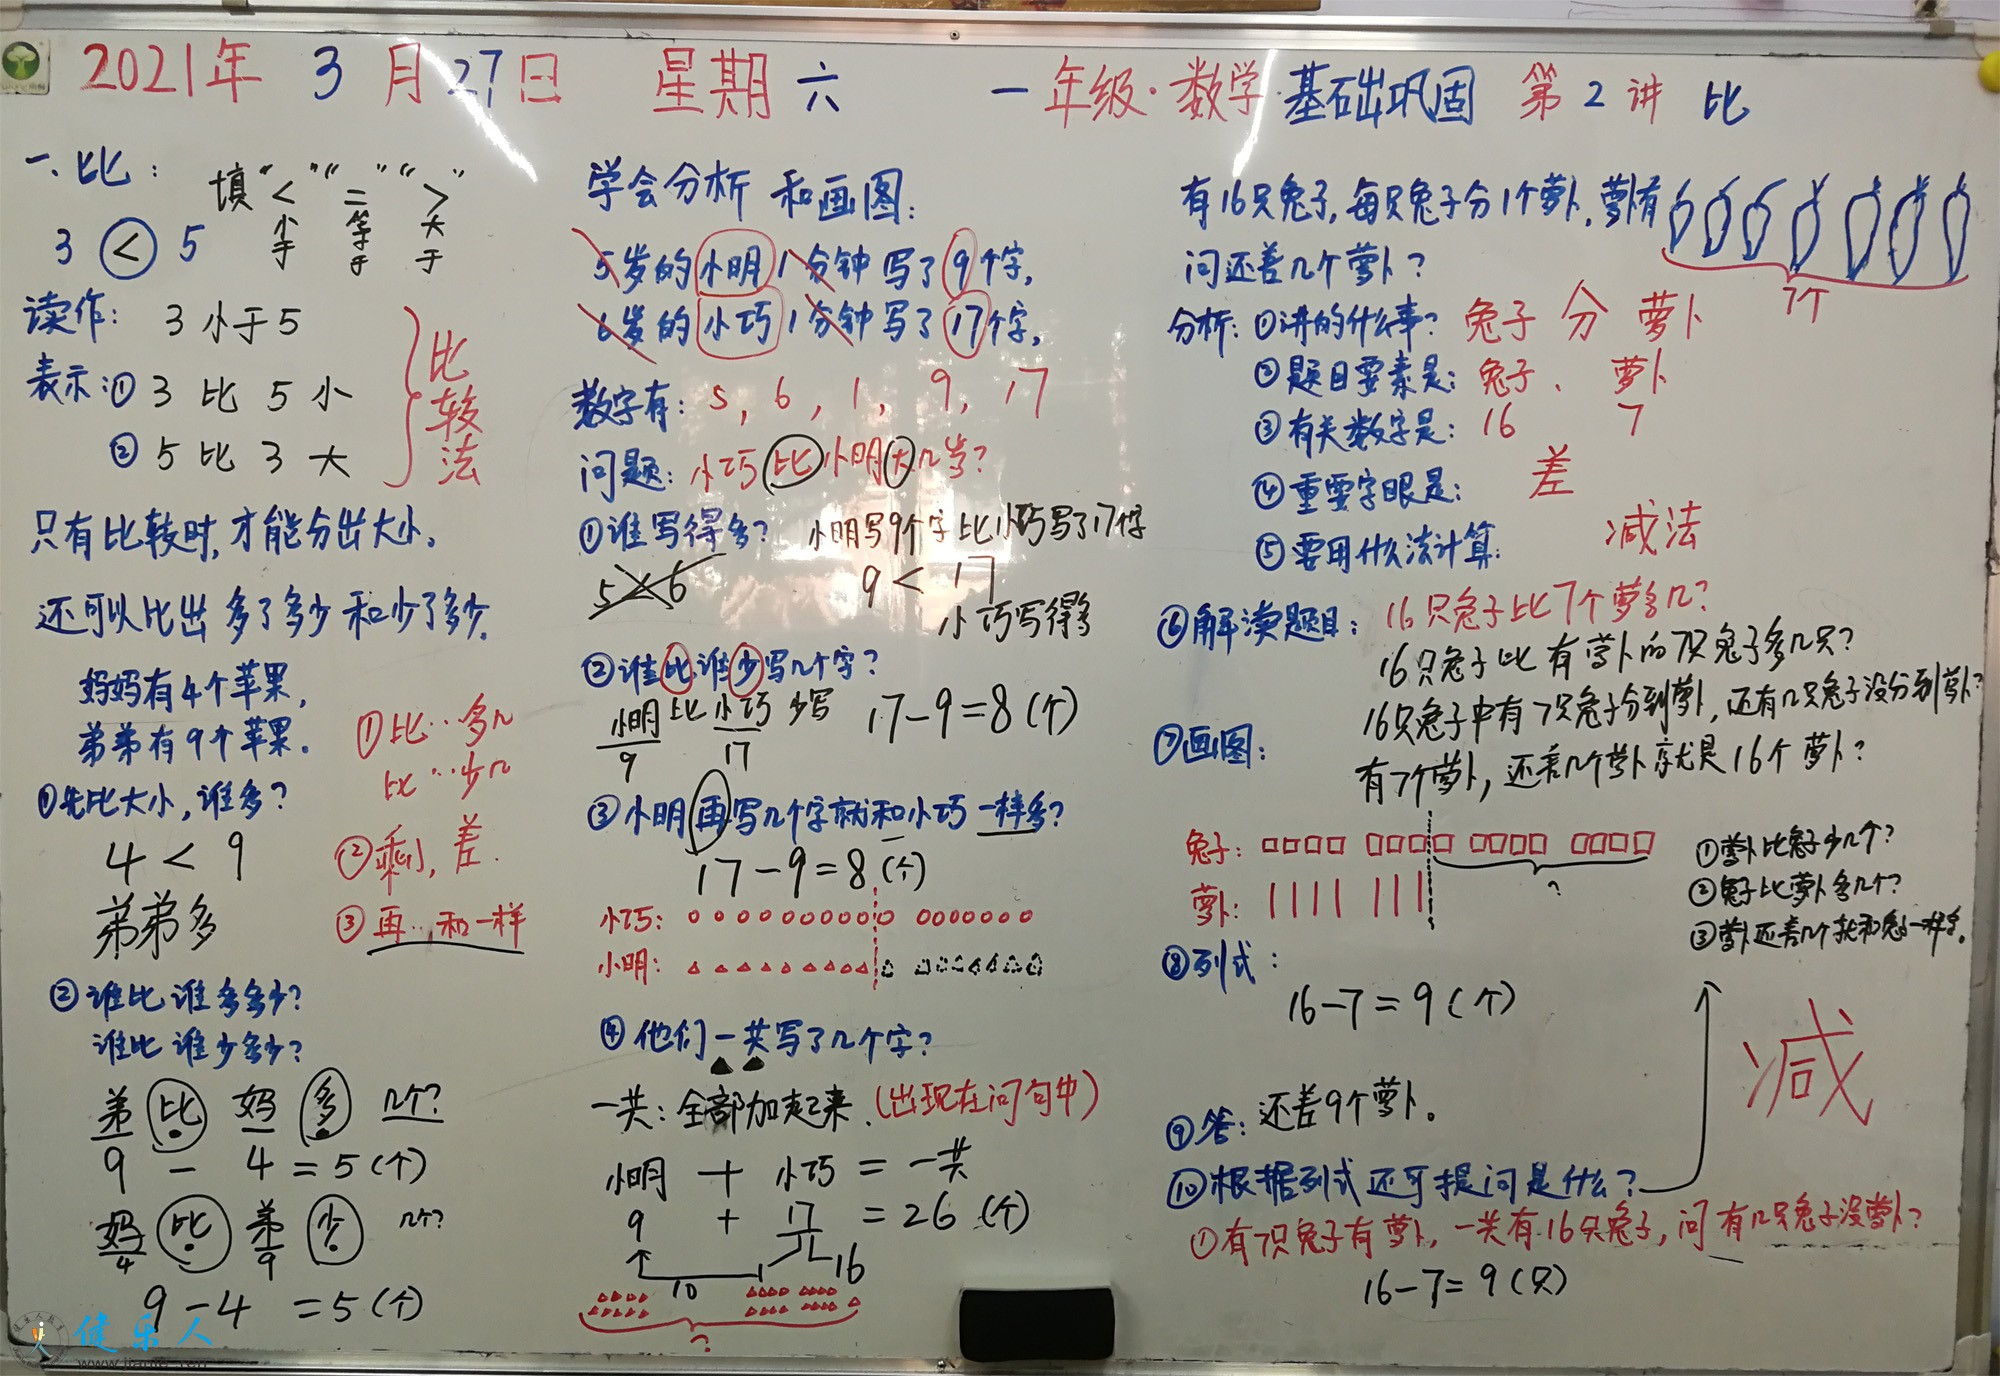 2021年 3月27日 星期六 一年级·数学·基础巩固 第2讲 比
一、比:
填“<”“=”“>”
小于 等于 大于
3 < 5
读作: 3小于5
表示:① 3 比 5 小
② 5 比 3 大
比较法
只有比较时,才能分出大小。
还可以比出多了多少和少了多少。
妈妈有4个苹果,
弟弟有9个苹果.
①先比大小,谁多?
4 < 9
弟弟多
①比…多几
比…少几
②剩,差.
③再…和一样
②谁比谁多多少?
谁比谁少多少?
弟 比 妈 多 几个?
9 - 4 = 5(个)
妈 比 弟 少 几个?
4 9
9-4 =5(个)
学会分析和画图:
5岁的小明1分钟写了9个字,
6岁的小巧1分钟写了17个字,
数字有: 5, 6, 1, 9, 17
问题: 小巧比小明大几岁?
①谁写得多? 小明写9个字比小巧写了17个字
5<6 9 < 17
小巧写得多
②谁比谁少写几个字?
小明比小巧少写 17-9=8(个)
9 17
③小明再写几个字就和小巧一样多?
17-9=8(个)
小巧:
小明:
④他们一共写了几个字?
一共:全部加起来.(出现在问句中)
小明 + 小巧 = 一共
9 + 17 = 26(个)
10 1 16
?
有16只兔子,每只兔子分1个萝卜,萝卜有
7个
问还差几个萝卜?
分析:①讲的什么事? 兔子 分 萝卜
②题目要素是: 兔子、萝卜
③有关数字是: 16 7
④重要字眼是: 差
⑤要用什么法计算: 减法
⑥解读题目: 16只兔子比7个萝多几?
16只兔子比有萝卜的7只兔子多几只?
16只兔子中有7只兔子分到萝卜,还有几只兔子没分到萝卜?
⑦画图:
有7个萝卜,还差几个萝卜就是16个萝卜?
兔子:
萝卜:
?
①萝卜比兔子少几个?
②兔子比萝卜多几个?
③萝卜还差几个就和兔子一样多。
⑧列式:
16-7=9(个)
减
⑨答: 还差9个萝卜。
⑩根据列式还可提问是什么?
①有7只兔子有萝卜,一共有16只兔子,问有几只兔子没萝卜?
16-7=9(只)
健乐人